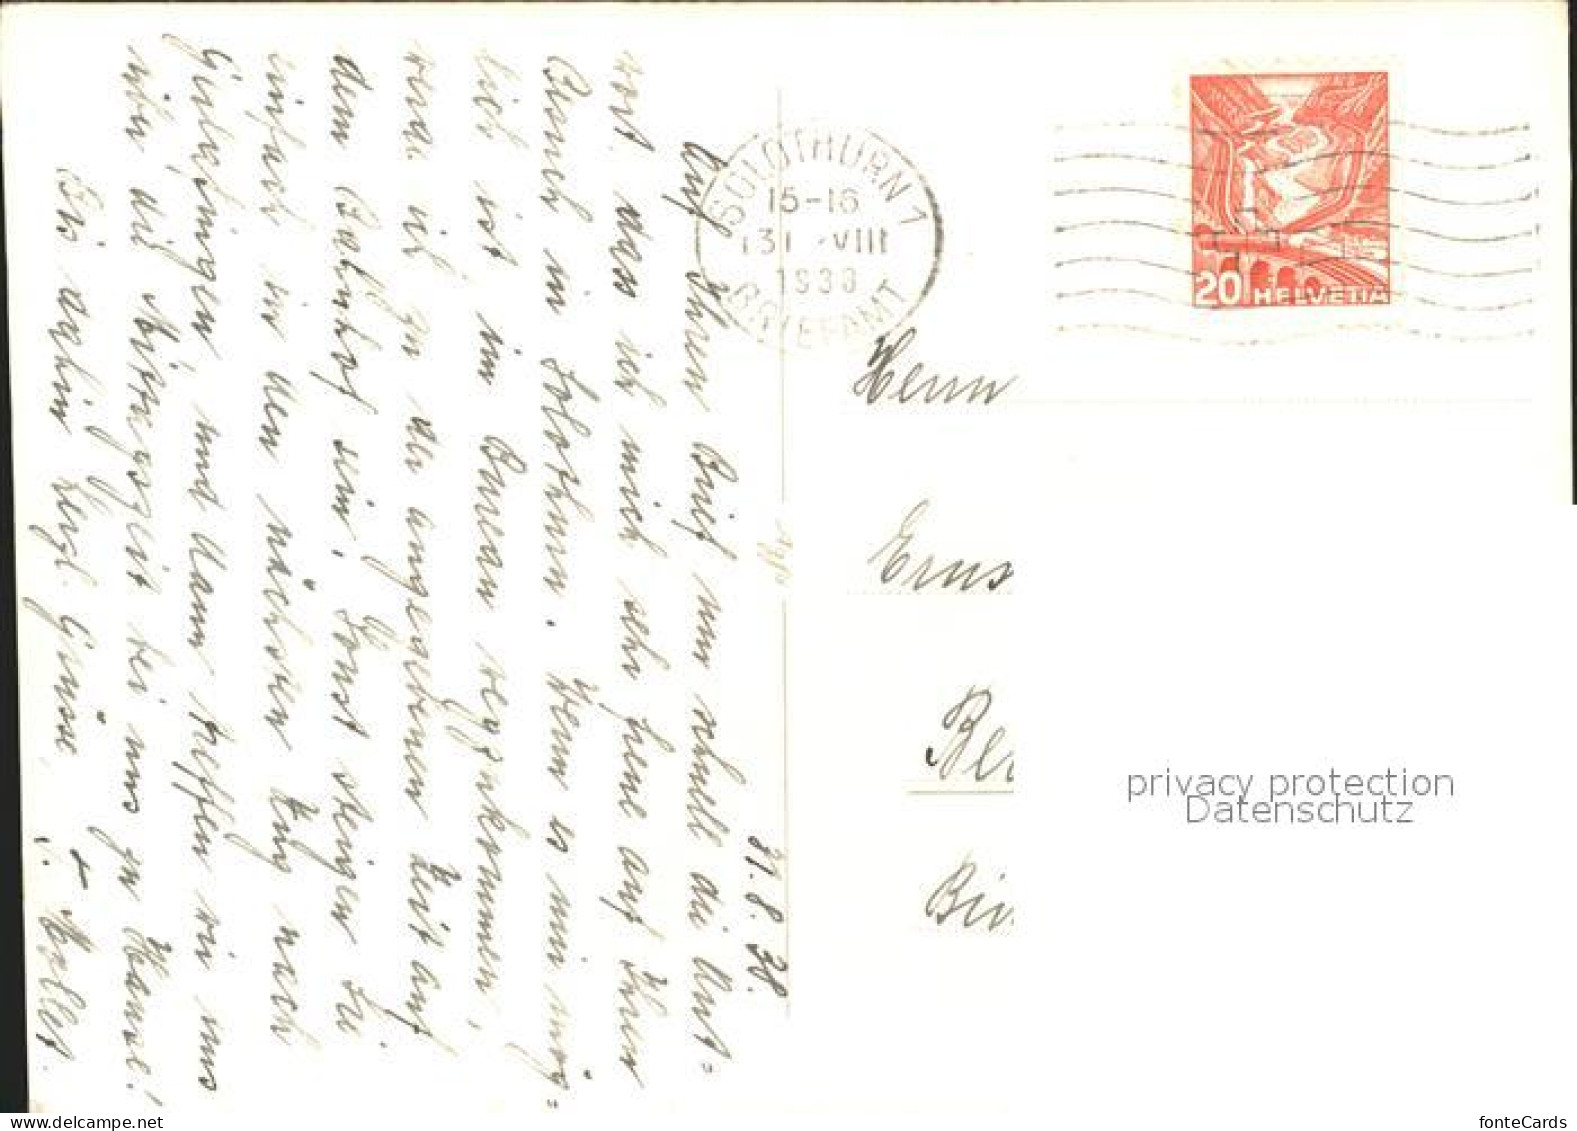 31.8.38.
Auf Ihren Brief nur schnell die Ant=
wort dass ich mich sehr freue auf Ihren
Besuch in Solothurn. Wenn es mir mög=
lich ist, im Bureau wegzukommen,
werde ich zu der angegebenen Zeit auf
dem Bahnhof sein. Sonst steigen Sie
einfach in den nächsten Zug nach
und dann treffen wir uns
über die Mittagszeit bei uns zu Hause!
Bis dahin herzl. Grüsse
SOLOTHURN 1
15-16
31 VIII
1938
BRIEFAMT
20 HELVETIA
Herrn
Erns
Be
Bi
privacy protection
Datenschutz
fonteCards